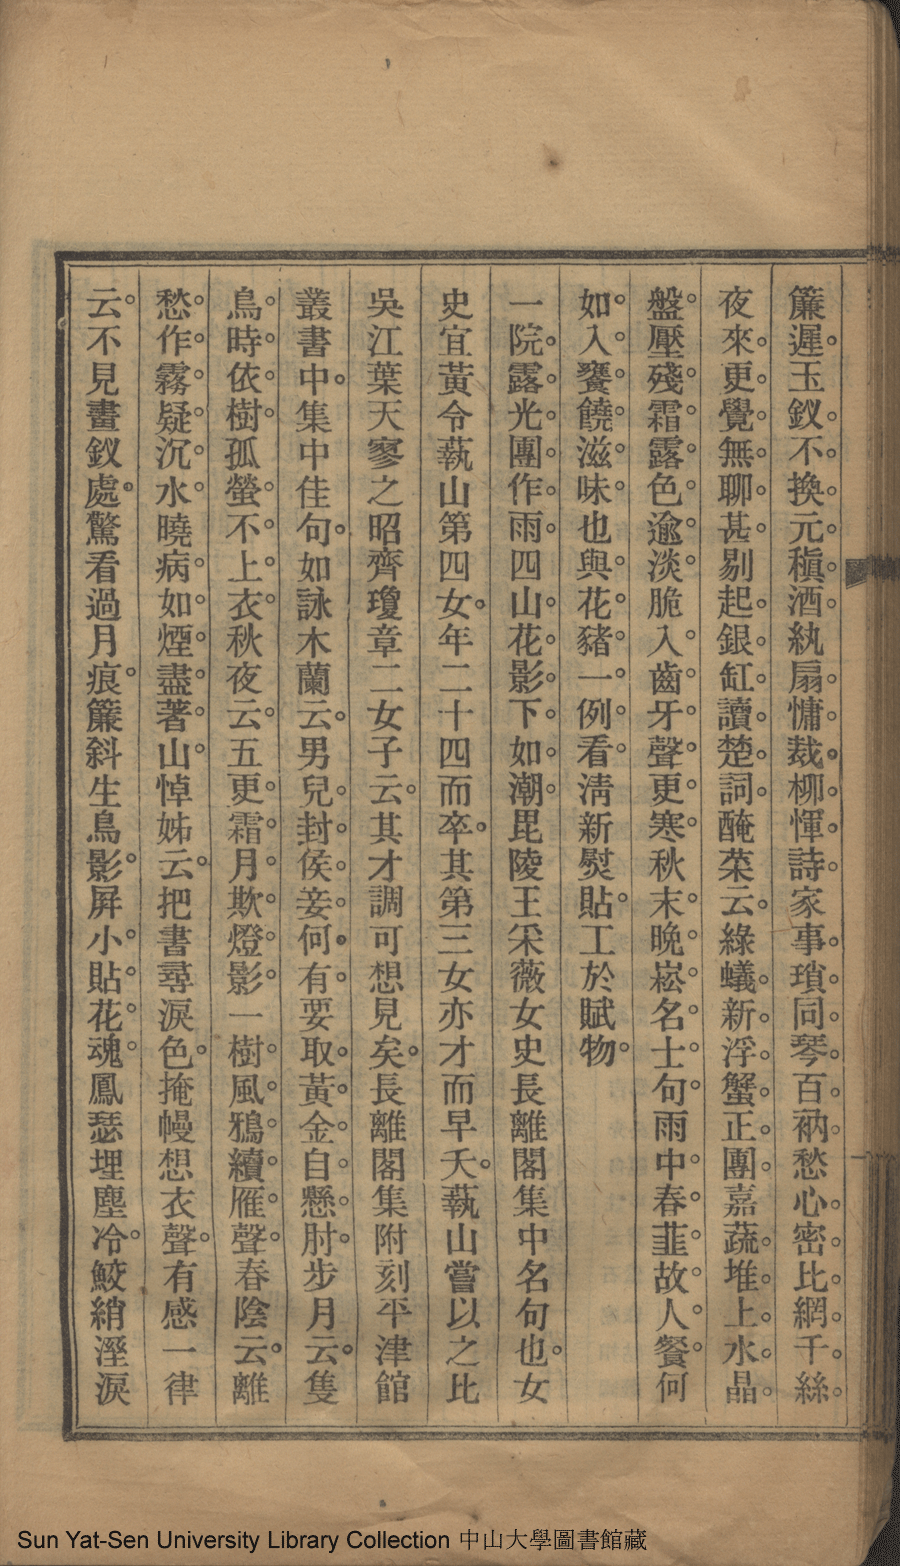 簾遲玉釵不換元稹酒紈扇慵裁柳惲詩家事瑣同琴百衲愁心密比網千絲
夜來更覺無聊甚剔起銀缸讀楚詞醃菜云綠蟻新浮蟹正團嘉蔬堆上水晶
盤壓殘霜露色逾淡脆入齒牙聲更寒秋末晚崧名士句雨中春韭故人餐何
如入饔饒滋味也與花豬一例看淸新熨貼工於賦物
一院露光團作雨四山花影下如潮毘陵王采薇女史長離閣集中名句也女
史宜黃令蓺山第四女年二十四而卒其第三女亦才而早夭蓺山嘗以之比
吳江葉天寥之昭齊瓊章二女子云其才調可想見矣長離閣集附刻平津館
叢書中集中佳句如詠木蘭云男兒封侯妾何有要取黃金自懸肘步月云隻
鳥時依樹孤螢不上衣秋夜云五更霜月欺燈影一樹風鴉續雁聲春陰云離
愁作霧疑沉水曉病如煙盡著山悼姊云把書尋淚色掩幔想衣聲有感一律
云不見畫釵處驚看過月痕簾斜生鳥影屏小貼花魂鳳瑟埋塵冷鮫綃溼淚
Sun Yat-Sen University Library Collection 中山大學圖書館藏